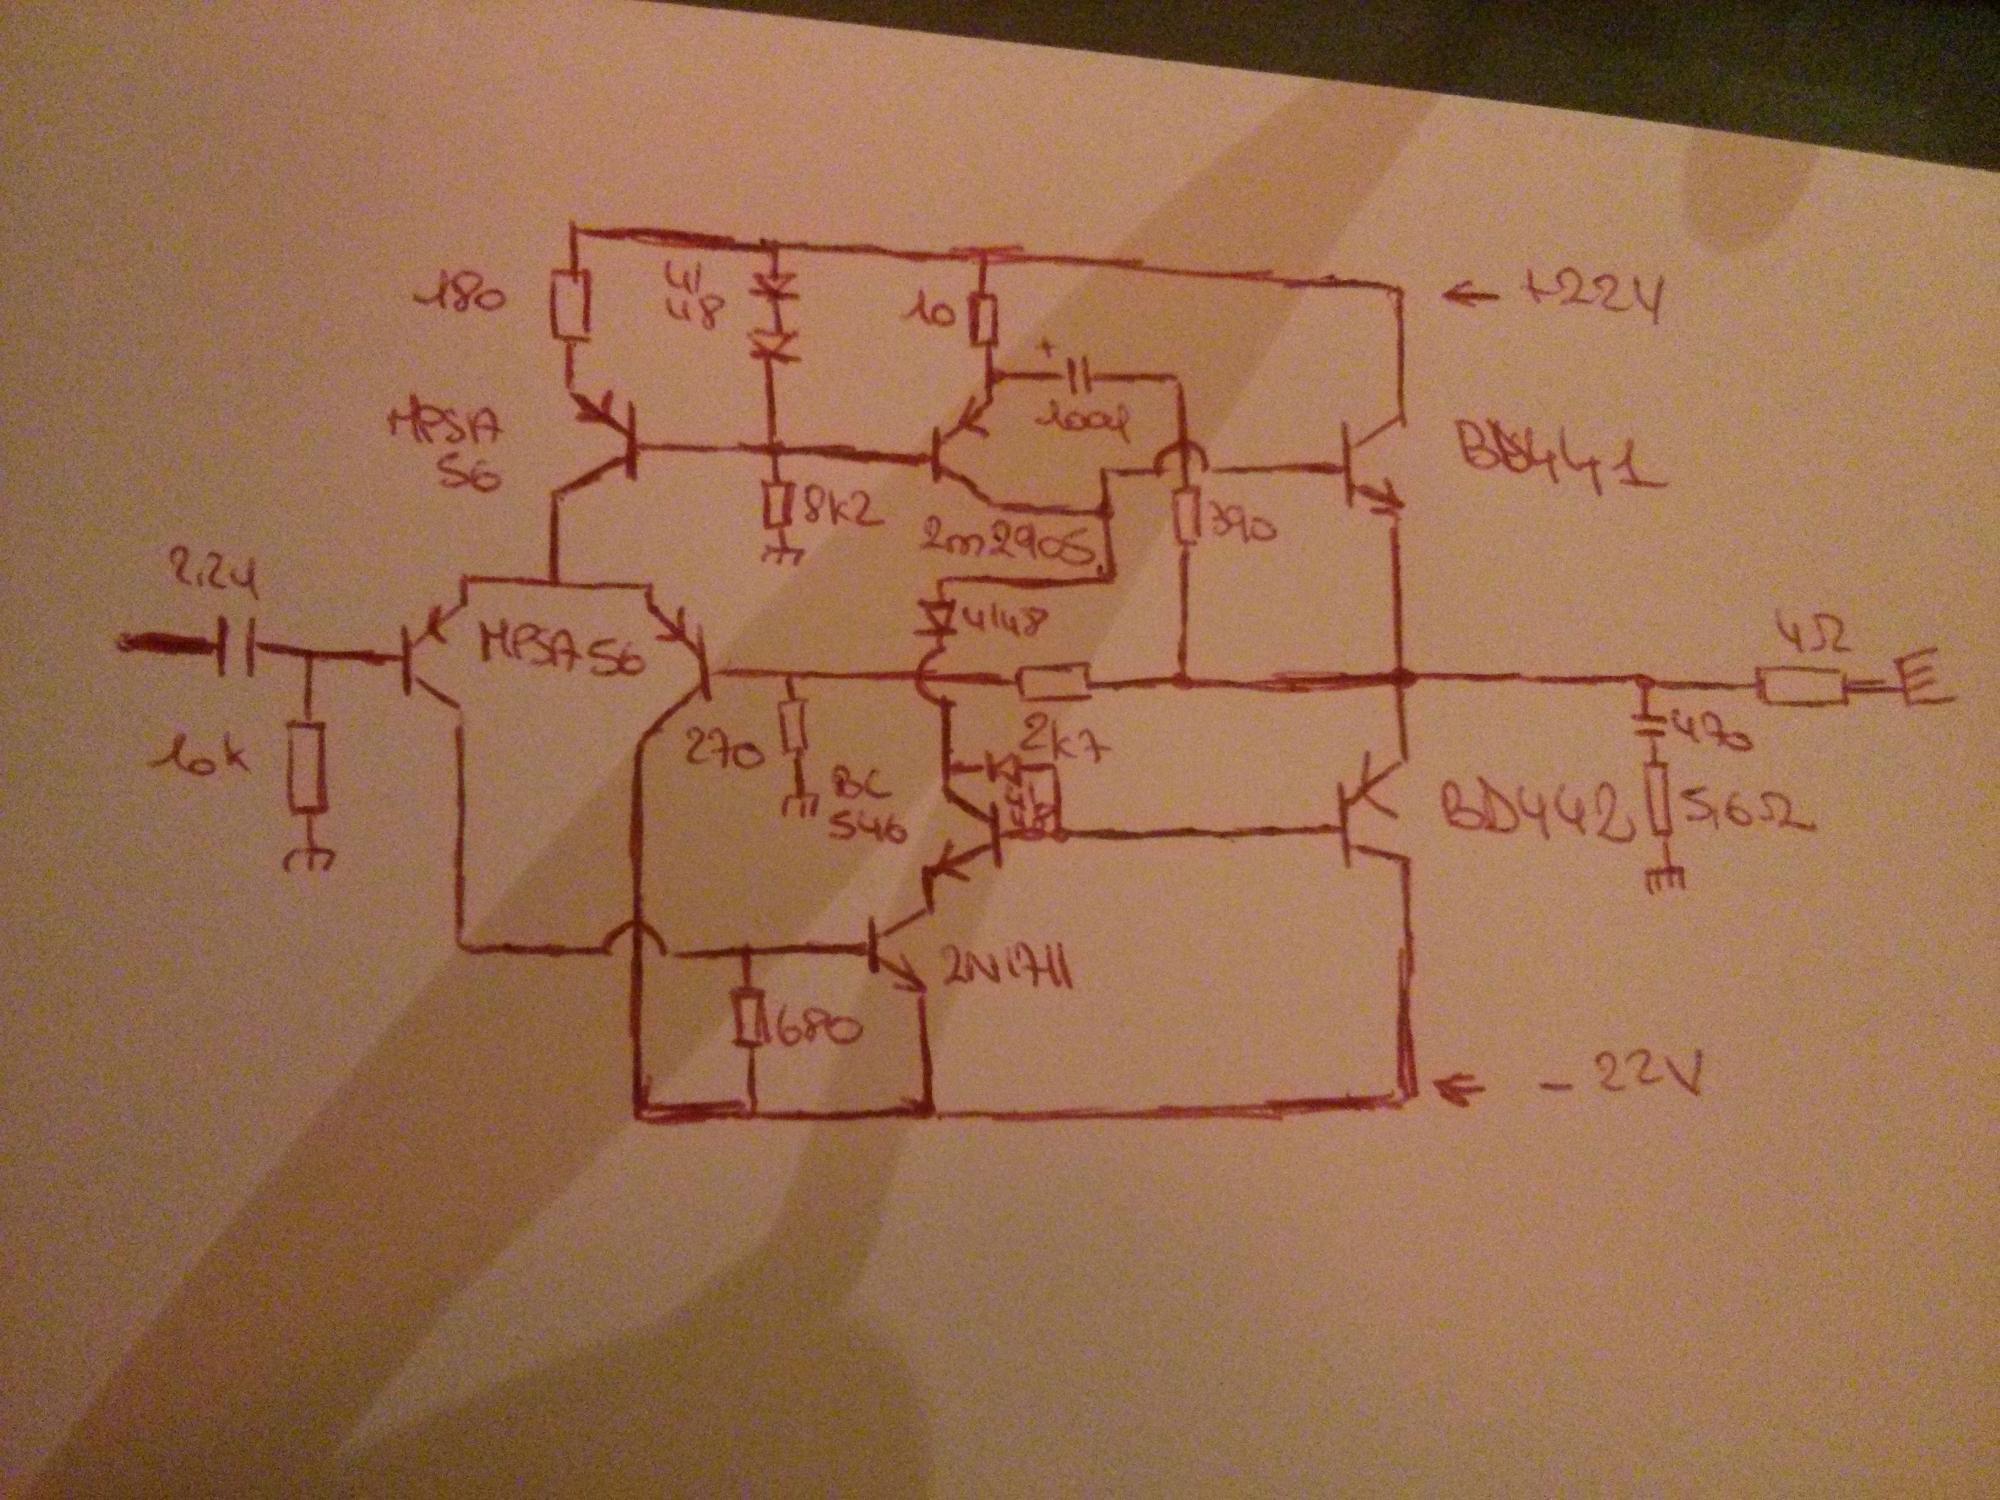 180
41
48
10
+22V
+
100µ
MPSA
56
BD441
8k2
2n2905
390
2.2µ
4148
4Ω
MPSA56
2k7
470
10k
270
BC
546
41
48
BD442
5,6Ω
2N1711
680
-22V